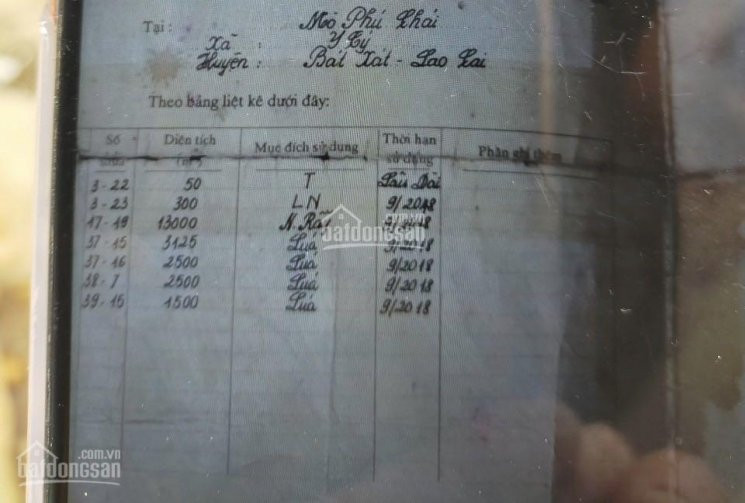 Tại : Mò Phú Chải
Xã : Y Tý
Huyện : Bát Xát - Lào Cai
Theo bảng liệt kê dưới đây:
Số Diện tích Mục đích sử dụng Thời hạn sử dụng Phần ghi thêm
3-22 50 T Lâu Dài
3-23 300 LN 9/2048
17-19 13000 N. Rẫy
37-15 3125 Lúa 9/2018
37-16 2500 Lúa 9/2018
38-7 2500 Lúa 9/2018
39-15 1500 Lúa 9/2018
.com.vn
batdongsan
.com.vn
batdongsan